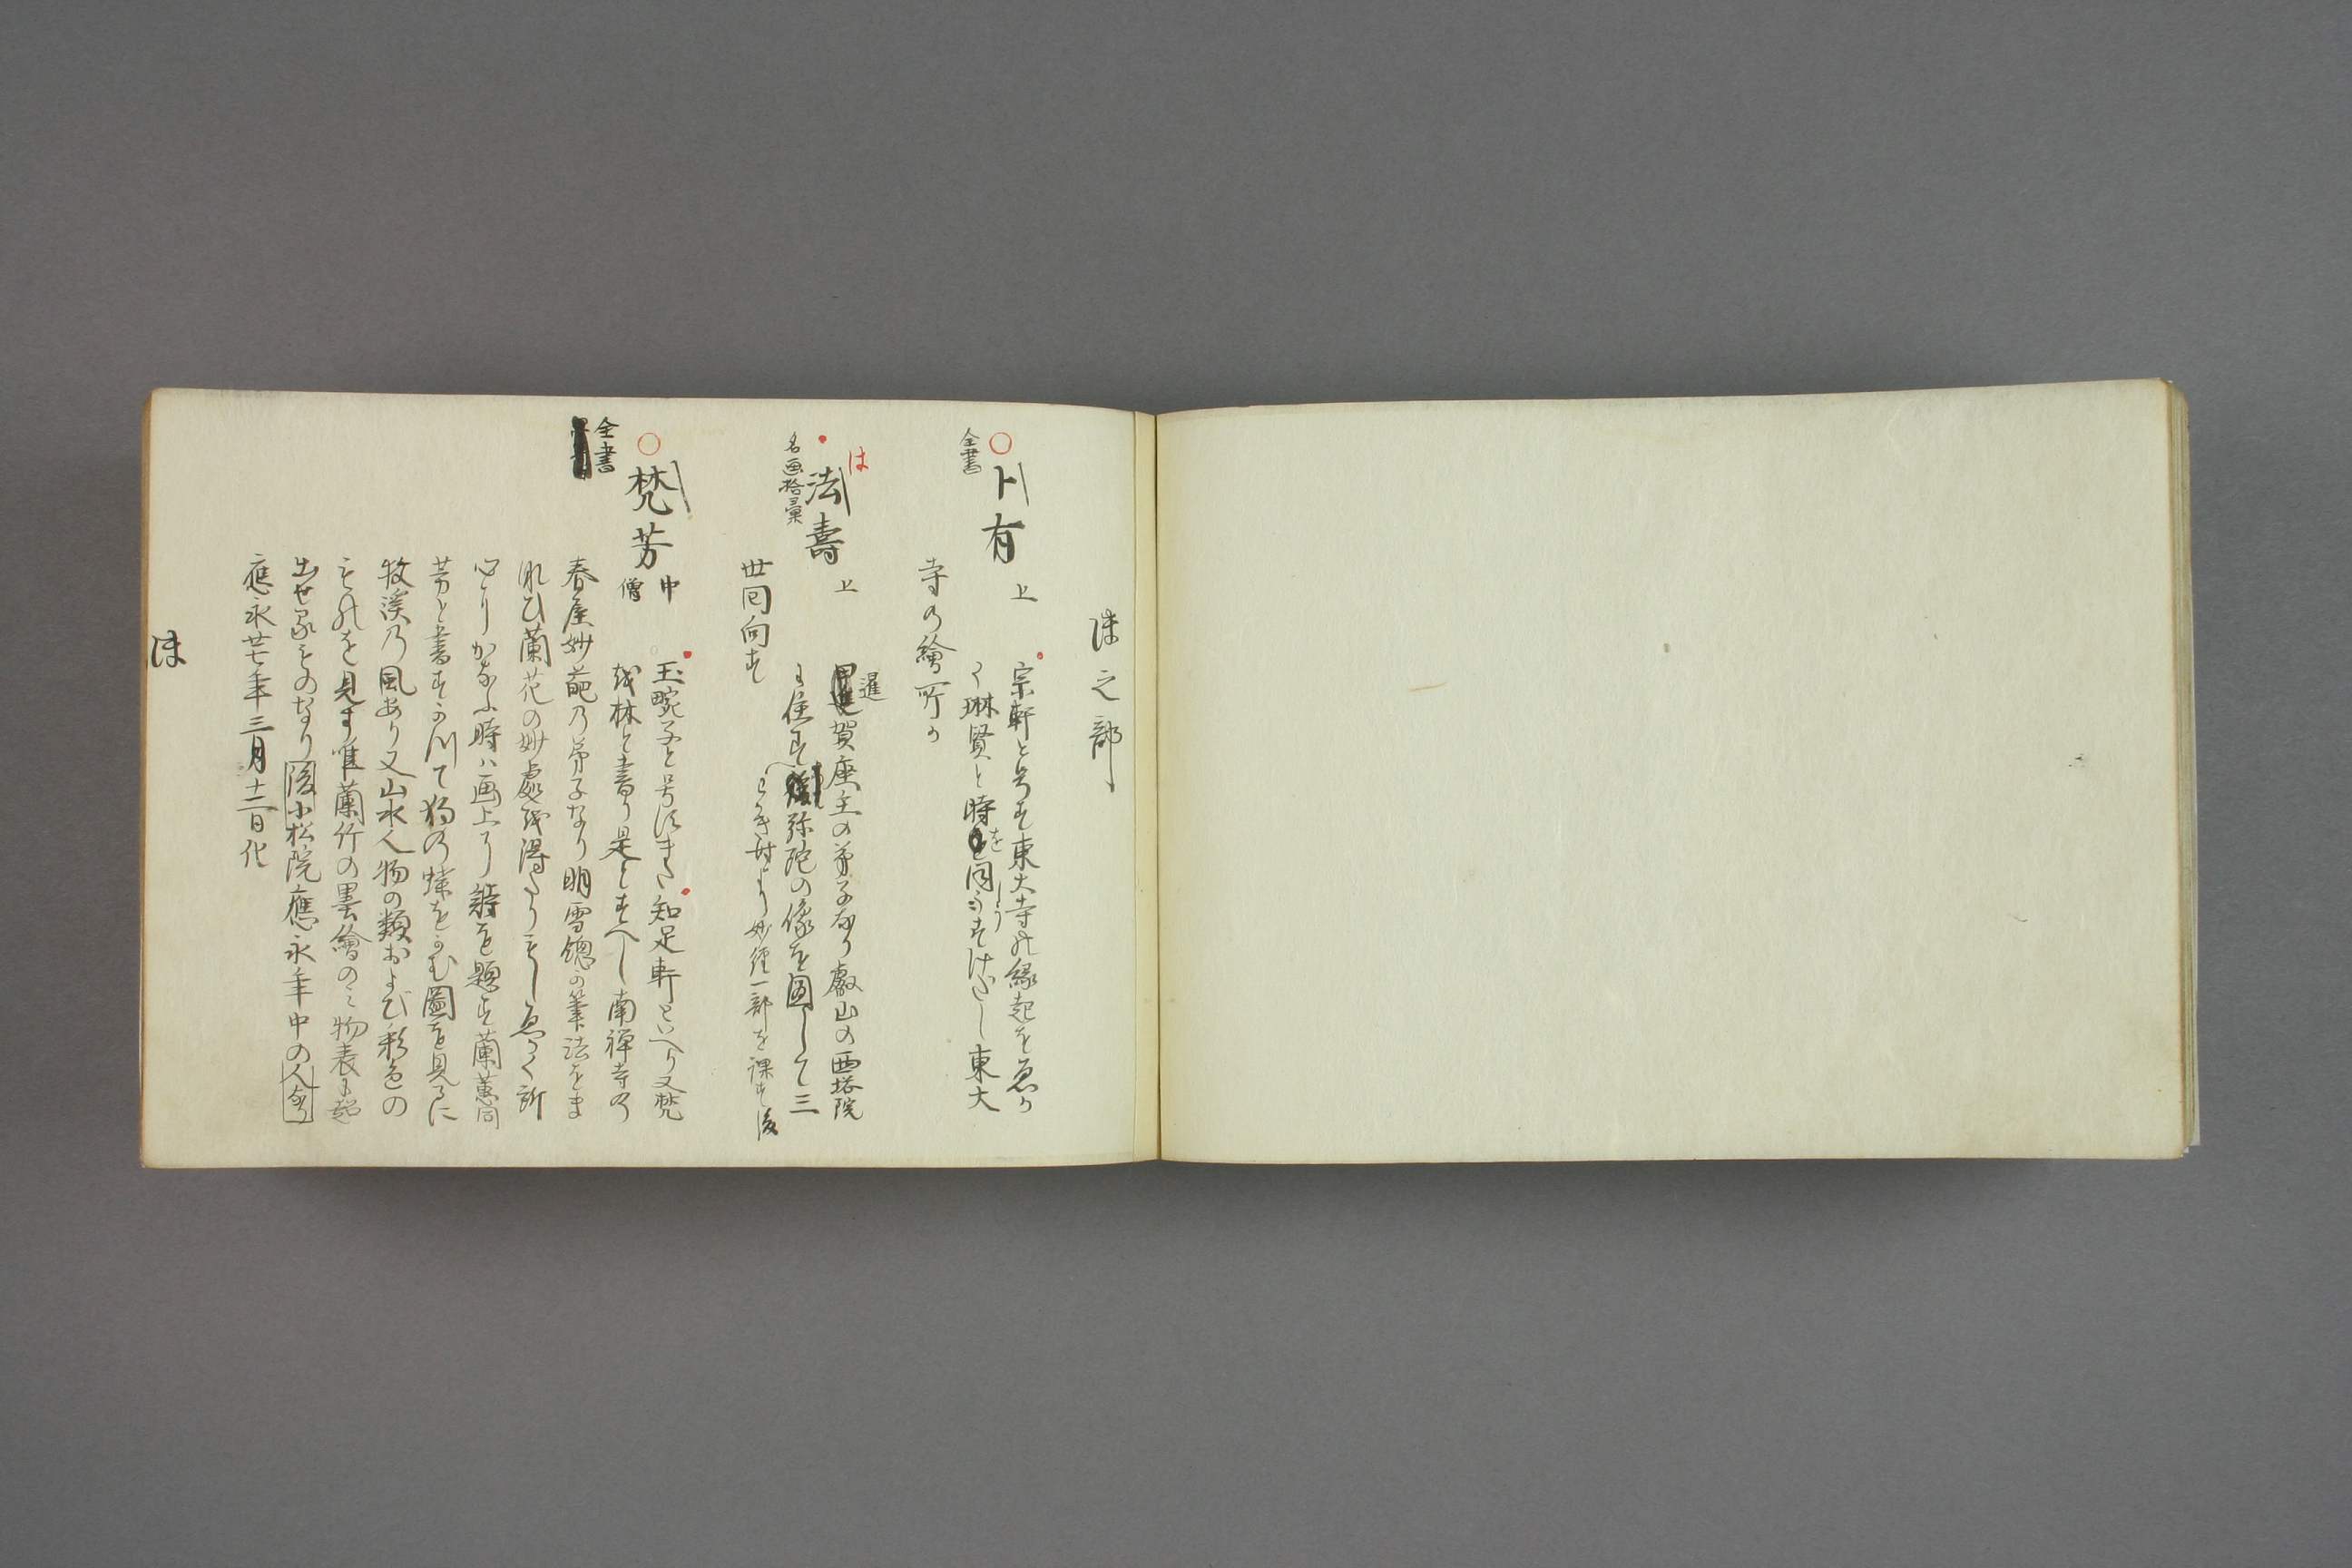 ほ之部
全書
卜有
上
宗軒と号す東大寺の縁起をゑか
く琳賢と時を同しうすけだし東大
寺の繪所か
は
名画拾彙
法壽
上
暹
賀座主の弟子なり叡山の西塔院
に住す弥陀の像を圖して三
妙經一部を課す後
世囘向す
全書
梵芳
中
僧
玉畹子と号すまた知足軒といへり又梵
林と書り是とすべし南禅寺の
春屋妙葩の弟子なり明雪窓の筆法をま
なひ蘭花の妙處を得たりもしゑかく所
心にかなふ時ハ画上に詩を題す蘭蕙同
芳と書すかつて猫の蝶をのぞむ圖を見るに
牧渓乃風あり又山水人物の類および彩色の
ものを見す唯蘭竹の墨繪のミ物表に超
出せるものなり後小松院應永年中の人なり
應永廿七年三月十二日化
ほ